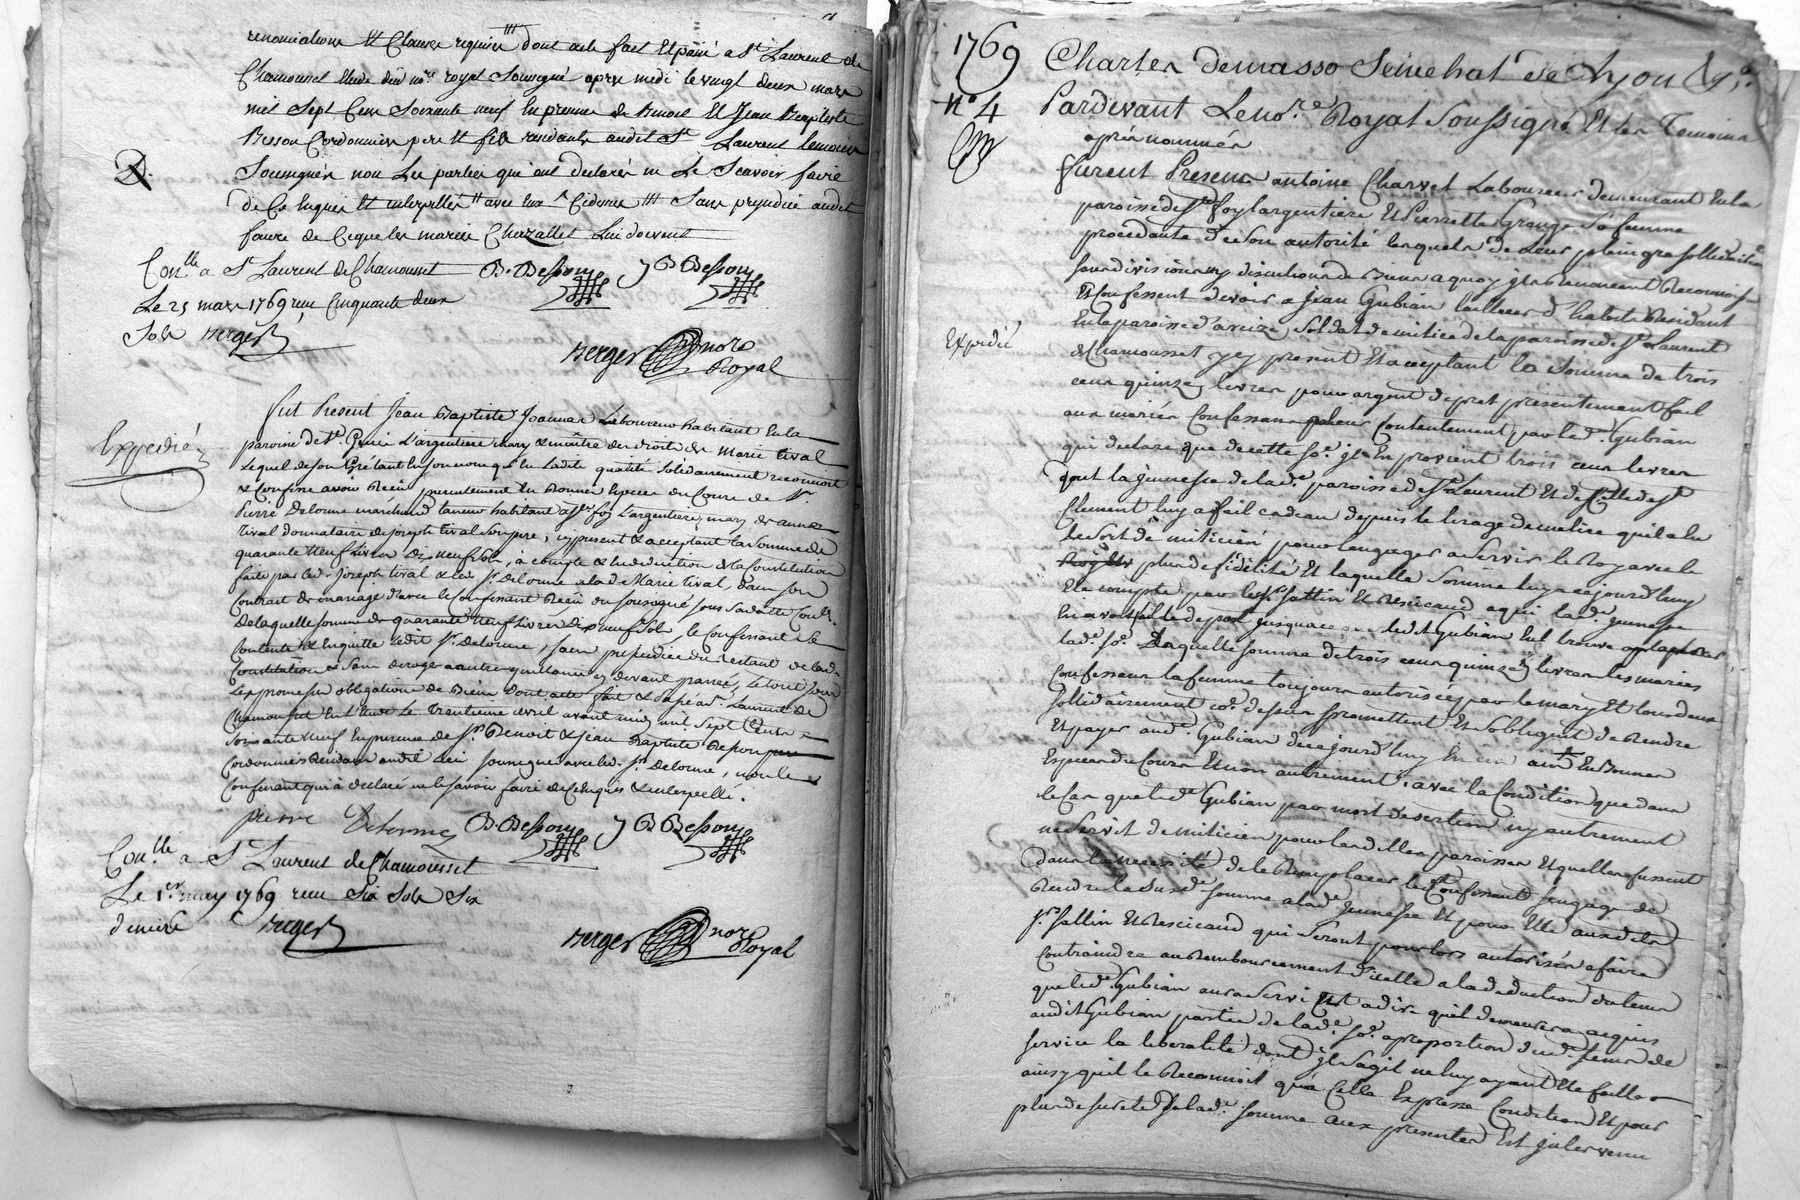 renonciations Et Clauses requises dont acte fait Et passé a St Laurent de
Chamousset Etude du no.re royal Soussigné apres midi le vingt deux mars
mil Sept Cens Soixante neuf En presence de Benoit Et Jean Baptiste
Besson Cordonniers pere Et fils residants audit St Laurent temoins
Soussignés non Les parties qui ont declarés ne Le Scavoir faire
de Ce Enquis Et interpellés Sans prejudice audit
faure de Ceque les mariés Chezallet Lui doivent
Con.lle a St Laurent de Chamousset B. Besson J B Besson
Le 25 mars 1769 reçu Cinquante deux
Sols Berger
Berger nore
Royal
Expedié
fut Present Jean Baptiste Joannas Laboureur habitant En la
paroisse de Ste L'argentiere mary & maitre des droits de Marie tival
Lequel de son Gré tant En son nom qu'En Ladite qualité solidairement reconnoit
& Confesse avoir Reçu presentement En Bonnes Especes du Cours de Sr
Pierre Delorme marchand taneur habitant a Ste foy L'argentiere, mary de anne
tival donnataire de joseph tival son pere, icy present & acceptant La Somme de
quarante neuf Livres dix neuf Sols, à compte & En deduction de la Constitution
faite par led. Joseph tival & led Sr. Delorme a lad. Marie tival, dans son
Contrat de mariage d'avec le Confessant Reçu du soussigné sous sa datte Con.lé.
De laquelle somme de quarante neuf Livres dix neuf Sols, le Confessant se
Contente & En quitte Ledit Sr. Delorme, sans prejudice du restant de lad.
Constitution & sans deroger a autres quittances cy devant passées, Le tout sous
Les promesses obligations de Biens Dont acte fait & Passé a St. Laurent de
Chamousset En L'Etude Le trentieme avril avant midi mil Sept Cents
soixante neuf En presence de Srs Benoit & Jean Baptiste Besson
Cordonniers Residants audit Lieu soussignés avec led. Sr. Delorme, non le
Confessant qui a declaré ne le savoir faire de Ce Enquis & interpellé.
pierre Delorme B. Besson J B Besson
Con.lle a St Laurent de Chamousset
Le 1er may 1769 reçu Six Sols Six
deniers Berger
Berger nore
Royal
1769 Charles demasso Senechal de Lyon
no 4 Pardevant Le no.re Royal Soussigné Et les Temoins
après nommés
furent Presens antoine Charvet Laboureur demeurant En la
paroisse de Ste foy Largentiere Et Pierrette Grange Sa femme
procedante de Son autorité lesquels de Leur plein gré sollidairement
sans division ny discution de Biens a quoy jls Renoncent Reconnoissent
Et Confessent devoir a Jean Gubian tailleur d'habits Residant
Expedié En la paroisse d'aveize, Soldat de milice de la paroisse de St Laurent
de Chamousset jcy present Et acceptant la Somme de trois
cens quinze livres pour argent de pret presentement fait
aux mariés Confessans a leur Contentement par led. Gubian
qui declare que de cette So.e jl En provient trois cens livres
dont la jeunesse de lad.e paroisse de St Laurent Et de Celle de St
Clement luy a fait cadeau depuis le tirage de milice qu'il a Eu
Le Sort de milicien pour l'engager a Servir le Roy avec le
plus de fidelité Et laquelle Somme luy a cejourd'huy
Eté comptée par les Srs fallin Et Rescicaud a qui lad.e jeunesse
En avoit fait le depost jusqua ce que ledit Gubian Eut trouvé a placer
lad.e So.e De laquelle Somme de trois cens quinze livres les mariés
Confessans la femme toujours autorisée par le mary Et tous deux
sollidairement co.e dessus promettent Et S'obligent de Rendre
Et payer aud. Gubian de cejourd'huy En un an En Bonnes
Especes du Cours Et non autrement, avec la Condition que dans
le Cas que led.e Gubian par mort desertion ny autrement
ne Servit de milicien pour lesdittes paroisses Et quelles fussent
dans la necessité de le Remplacer les Confessans s'engage de
Rendre la Susd.e Somme a lad.e jeunesse Et pour Elle auxdits
Srs fallin Et Rescicaud qui Seront pour lors autorisés a faire
Contraindre au Remboursement d'icelle a la deduction du tems
que led. Gubian aura Servi c'est a dire qu'il demeurera acquis
audit Gubian partie de lad.e So.e a proportion dud. tems de
Service la liberalité dont jl s'agit ne luy ayant Eté faitte
ainsy quil le Reconnoit qu'a Cette Expresse Condition Et pour
plus de sureté de lad.e Somme aux presentes Est jntervenu